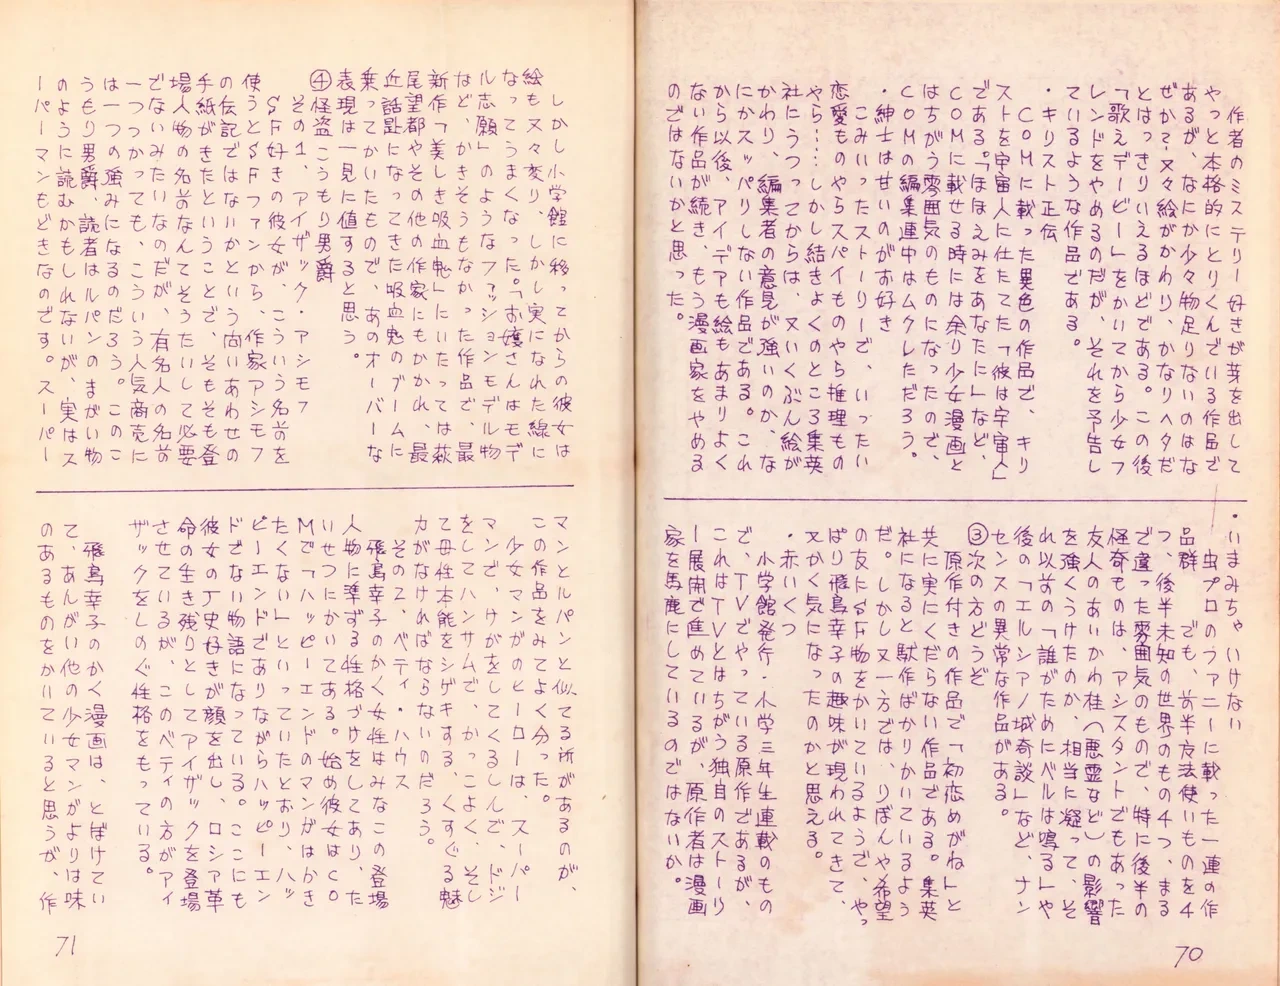 作者のミステリー好きが芽を出して
やっと本格的にとりくんでいる作品で
あるが、なにか少々物足りないのはな
ぜか?又々絵がかわり、かなりヘタだ
とはっきりいえるほどである。この後
「歌えデービー」をかいてから少女フ
レンドをやめるのだが、それを予告し
ているような作品である。
・キリスト正伝
COMに載った異色の作品で、キリ
ストを宇宙人に仕たてた「彼は宇宙人」
である。「ほほえみをあなたに」など、
COMに載せる時には余り少女漫画と
はちがう雰囲気のものになったので、
COMの編集連中はムクレただろう。
・紳士は甘いのがお好き
こみいったストーリーで、いったい
恋愛ものやらスパイものやら推理もの
やら……しかし結きょくのところ集英
社にうつってからは、又いくぶん絵が
かわり、編集者の意見が強いのか、な
にかスッパリしない作品である。これ
から以後、アイデアも絵もあまりよく
ない作品が続き、もう漫画家をやめる
のではないかと思った。
・いまみちゃいけない
虫プロのファニーに載った一連の作
品群 でも、前半友法使いものを4
つ、後半未知の世界のもの4つ、まる
で違った雰囲気のもので、特に後半の
怪奇ものは、アシスタントでもあった
友人のあいかわ桂(悪霊など)の影響
を強くうけたのか、相当に凝って、そ
れ以前の「誰がためにベルは鳴る」や
後の「エルシアノ城奇談」など、ナン
センスの異常な作品がある。
③次の方どうぞ
原作付きの作品で「初恋めがね」と
共に実にくだらない作品である。集英
社になると駄作ばかりかいているよう
だ。しかし又一方では、りぼんや希望
の友にSF物をかいているようで、やっ
ぱり飛鳥幸子の趣味が現われてきて、
又かく気になったのかと思える。
・赤いくつ
小学館発行・小学三年生連載のもの
で、TVでやっている原作であるが、
これはTVとはちがう独自のストーリ
ー展開で進めているが、原作者は漫画
家を馬鹿にしているのではないか。
70
しかし小学館に移ってからの彼女は
絵も又々変り、しかし実になれた線に
なってうまくなった。「お嬢さんはモデ
ル志願」のようなファッションモデル物
など、かきそうもなかった作品で、最
新作「美しき吸血鬼」にいたっては萩
尾望都やその他の作家にもかかれ、最
近話題になってきた吸血鬼のブームに
乗ってかいたもので、あのオーバーな
表現は一見に値すると思う。
④怪盗こうもり男爵
その1、アイザック・アシモフ
SF好きの彼女が、こういう名前を
使うとSFファンから、作家アシモフ
の伝記ではないかという問いあわせの
手紙がきたということで、そもそも登
場人物の名前なんてそうたいして必要
でないみたいなのだが、有名人の名前
一つつかっても、こういう人気商売に
は一つの強みになるのだろう。このこ
うもり男爵、読者はルパンのまがい物
のように読むかもしれないが、実はス
ーパーマンもどきなのです。スーパー
マンとルパンと似てる所があるのが、
この作品をみてよく分った。
少女マンガのヒーローは、スーパー
マンで、けがをしてくるしんで、ドジ
をしてハンサムで、かっこよく、そし
て母性本能をシゲキする、くすぐる魅
力がなければならないのだろう。
その2、ベティ・ハウス
飛鳥幸子のかく女性はみなこの登場
人物に準ずる性格づけをしてあり、た
いせつにかいてある。始め彼女はCO
Mで「ハッピーエンドのマンガはかき
たくない」といっていたとおり、ハッ
ピーエンドでありながらハッピーエン
ドでない物語になっている。ここにも
彼女の歴史好きが顔を出し、ロシア革
命の生き残りとしてアイザックを登場
させているが、このベティの方がアイ
ザックをしのぐ性格をもっている。
飛鳥幸子のかく漫画は、とぼけてい
て、あんがい他の少女マンガよりは味
のあるものをかいていると思うが、作
71